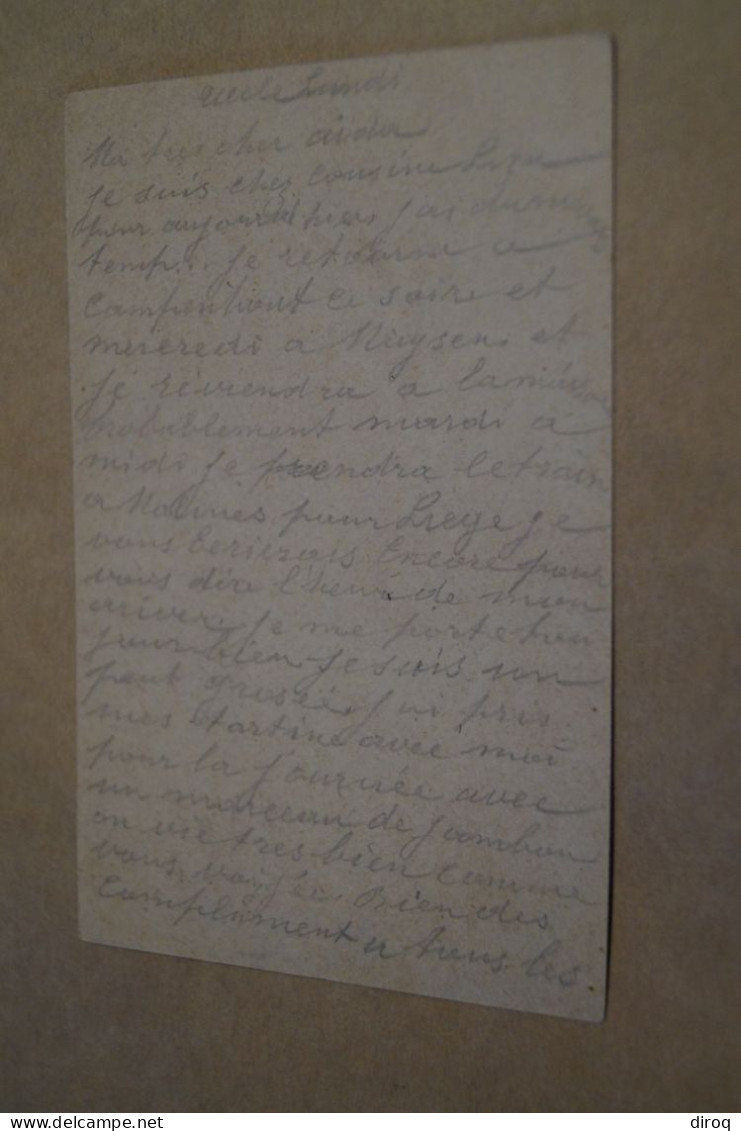 Lundi
Ma tres cher aider
je suis chez cousine
pour aujourd'hier j'ai du
temp. je retourn a
Campenhout ce soire et
mercredi a Muysen et
je reviendra a la
probablement mardi a
midi je prendra le train
a Malines pour Liege je
vous ecrierois encore pour
vous dire l'heure de mon
arriver. je me porte tou
jour bien je suis un
peut j'ai pris
mes tartine avec moi
pour la journée avec
un morceau de jambon
on vie tres bien comme
vous voyée. Bien des
Complument a tous les
diroq